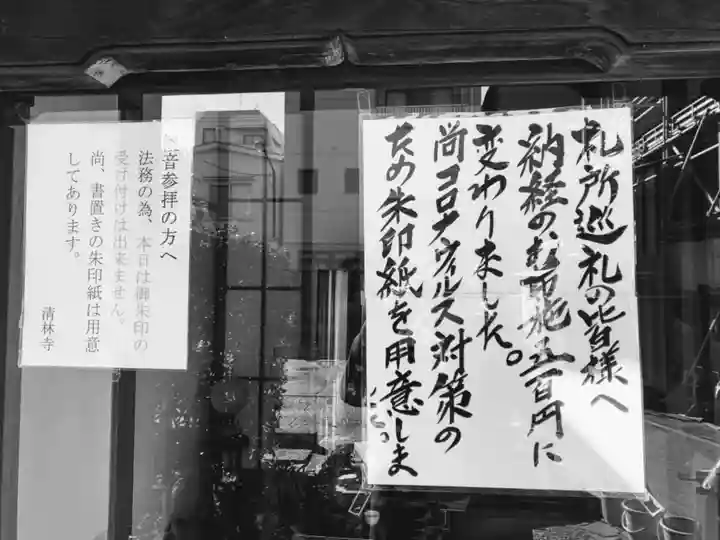 札所巡礼の皆様へ
納経のお布施五百円に
変わりました。
尚コロナウィルス対策の
ため朱印紙を用意しま
した。
音参拝の方へ
法務の為、本日は御朱印の
受け付けは出来ません。
尚、書置きの朱印紙は用意
してあります。
清林寺